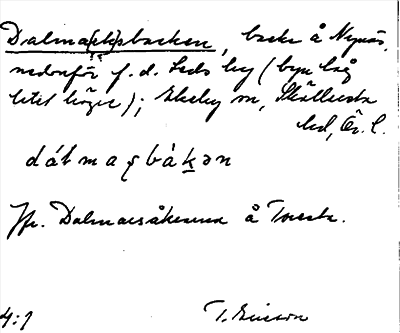 Dalma(sk)sbacken, backe å Nynäs,
nedanför f. d. Seds by (byn låg
litet högre); Ekeby sn, Skyllersta
hd, Ör. l.
dálmasbákən
Jfr. Dalmasåkrarna å Torsta.
4:1 T. Ericson